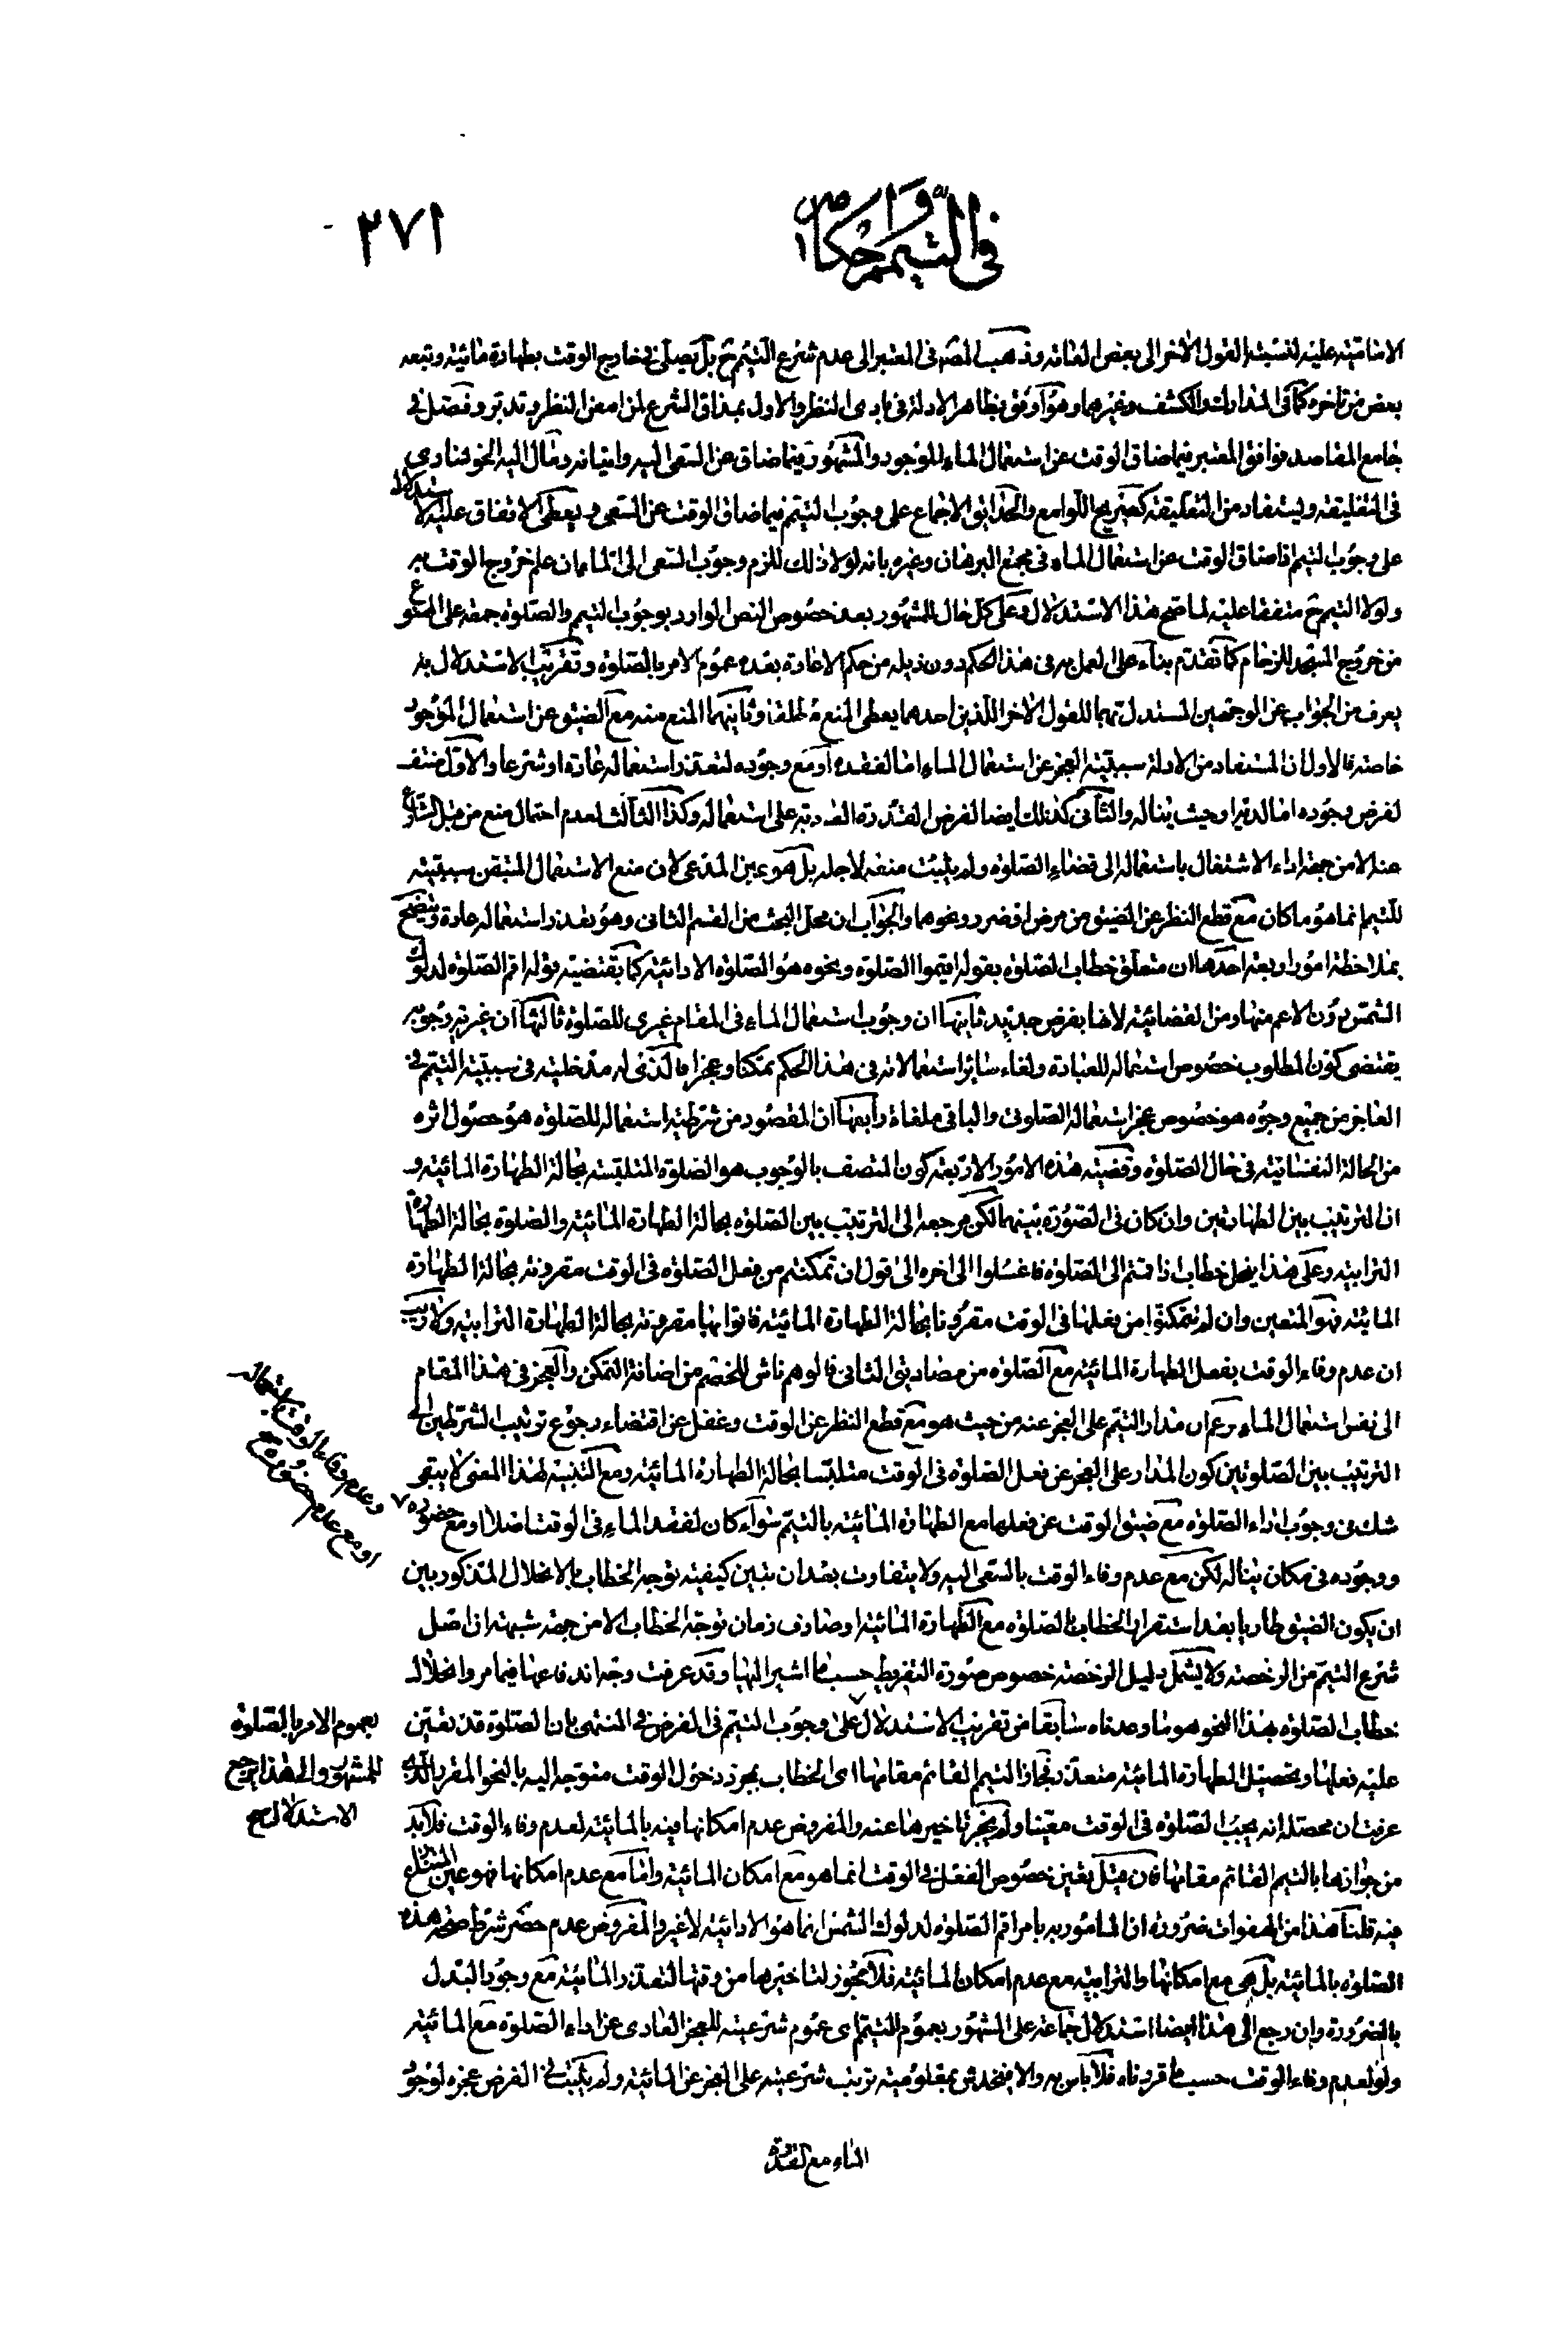 في التيمم واحكامه
٢٧١
الامامية عليه لنسبته القول الاخر الى بعض العامة وذهب المصّ في المعتبر الى عدم شرع التيمّم ح بل يصلّى في خارج الوقت بطهارة مائيّة وتبعه
بعض من تاخره كما في المدارك والكشف وغيرهما وهو اوفق بظاهر الادلة في بادى النظر والاول بمذاق الشرع لمن امعن النظر وتدبر وفصّل في
جامع المقاصد فوافق المعتبر فيما ضاق الوقت عن استعمال الماء الموجود والمشهور فيما ضاق عن السّعى اليه واتيانه ومال اليه الخونسارى
في التعليقة ويستفاد من التعليقة كصريح اللوامع والحدائق الاجماع على وجوب التيمّم فيما ضاق الوقت عن السّعى ويعطى الاتفاق عليه الاستدلال
على وجوب التيمم اذا ضاق الوقت عن استعمال الماء في مجمع البرهان وغيره بانه لولا ذلك للزم وجوب السّعى الى الماء وان علم خروج الوقت به
ولولا التيمم ح متفقا عليه لما صح هذا الاستدلال وعلى كل حال للمشهور بعد خصوص النص الوارد بوجوب التيمم والصّلوة جمعة على الممنوع
من خروج المسجد للزحام كما تقدّم بناء على العمل به في هذا الحكم دون ذيله من حكم الاعادة بعده عموم الامر بالصّلوة وتقريب الاستدلال به
يعرف من الجواب عن الوجهين المستدل بهما للقول الاخر اللّذين احدهما يعطى المنع مطلقا وثانيهما المنع منه مع الضيق عن استعمال الموجود
خاصّة فالاول ان المستفاد من الادلة سببيّة العجز عن استعمال الماء امّا لفقده او مع وجوده لتعذر استعماله عادة او شرعا والاوّل منتف
لفرض وجوده امّا لديه او حيث يناله والثانى كذلك ايضا لفرض القدرة العادية على استعماله وكذا الثالث لعدم احتمال منع من قبل الشارع
عنه الا من جهة اداء الاشتغال باستعماله الى قضاء الصّلوة ولم يثبت منعه لاجله بل هو عين المدّعى لان منع الاستعمال المتيقن سببيّته
للتيمم انما هو ما كان مع قطع النظر عن الضيق من مرض او ضرر ونحوهما والجواب ان محل البحث من القسم الثانى وهو تعذر استعماله عادة ويتضح
بملاحظة امور اربعة احدها ان متعلق خطاب الصّلوة بقوله اقيموا الصّلوة ونحوه هو الصّلوة الادائيّة كما يقتضيه قوله اقم الصّلوة لدلوك
الشمس دون الاعم منها ومن القضائيّة لانها بفرض جديد ثانيها ان وجوب استعمال الماء في المقام غيرى للصّلوة ثالثها ان غيرية وجوبه
يقتضى كون المطلوب خصوص استعماله للعبادة والغاء سائر استعمالاته في هذا الحكم تمكنا وعجزا فالذى له مدخلية في سببيّة التيمّم في
العاجز من جميع وجوه هو خصوص عجز استعماله الصّلوتى والباقى ملغاة رابعها ان المقصود من شرطية استعماله للصّلوة هو حصول اثره
من الحالة النفسانيّة في حال الصّلوة وقضيّة هذه الامور الاربعة كون المتصف بالوجوب هو الصّلوة المتلبّسة بحالة الطهارة المائيّة و
ان الترتيب بين الطهارتين وان كان في الصّورة بينهما لكن مرجعه الى الترتيب بين الصّلوة بحالة الطهارة المائيّة والصّلوة بحالة الطهارة
الترابيّة وعلى هذا ينحل خطاب اذا قمتم الى الصّلوة فاغسلوا الى اخره الى قول ان تمكنتم من فعل الصّلوة في الوقت مقرونة بحالة الطهارة
المائيّة فهو المتعين وان لم تتمكنوا من فعلها في الوقت مقرونا بحالة الطهارة المائيّة فاتوا بها مقرونة بحالة الطهارة الترابيّة ولا ريب
ان عدم وفاء الوقت بفعل الطهارة المائيّة مع الصّلوة من مصاديق الثانى فالوهم ناش للخصم من اضافة التمكن والعجز في هذا المقام
الى نفس استعمال الماء بزعم ان مدار التيمّم على العجز عنه من حيث هو مع قطع النظر عن الوقت وغفل عن اقتضاء رجوع ترتيب الشرطين الى
الترتيب بين الصّلوتين كون المدار على العجز عن فعل الصّلوة في الوقت متلبّسا بحالة الطهارة المائيّة ومع التنبيه لهذا المعنى لا يبقى
شك في وجوب اداء الصّلوة مع ضيق الوقت عن فعلها مع الطهارة المائيّة بالتيمّم سواء كان لفقد الماء في الوقت اصلا او مع حضوره
وعدم وفاء الوقت باستعماله
او مع عدم حضوره صح
ووجوده في مكان يناله لكن مع عدم وفاء الوقت بالسّعى اليه ولا يتفاوت بعد ان تبين كيفية توجه الخطاب بالانحلال المذكور بين
ان يكون الضيق طاريا بعد استقرار الخطاب بالصّلوة مع الطهارة المائيّة او صادف زمان توجّه الخطاب الا من جهة شبهة ان اصل
شرع التيمّم من الرخصة ولا يشمل دليل الرخصة خصوص صورة التفريط حسب ما اشير اليها وقد عرفت وجه اندفاعها فيما مر وانحلال
خطاب الصّلوة بهذا النحو هو ما وعدناه سابقا من تقريب الاستدلال على وجوب التيمّم في الفرض في المنتهى بان الصّلوة قد تعيّن
بعموم الامر بالصّلوة
للمشهور والى هذا يرجع
الاستدلال صح
عليه فعلها وتحصيل الطهارة المائيّة متعذّر فجاز التيمم القائم مقامها اى الخطاب بمجرد دخول الوقت متوجه اليه بالنحو المقرر الذى
عرفت ان محصّله انه يجب الصّلوة في الوقت معيّنا ولم يجز تاخيرها عنه والمفروض عدم امكانها فيه بالمائيّة لعدم وفاء الوقت فلا بد
من جوازها بالتيمم القائم مقامها فان قيل تعيّن خصوص الفعل في الوقت انما هو مع امكان المائيّة وامّا مع عدم امكانها فهو عين المتنازع
فيه قلنا هذا من الهفوات ضرورة ان المامور به بامر اقم الصّلوة لدلوك الشمس انما هو الادائيّة لا غير والمفروض عدم حصر شرط صحّة هذه
الصّلوة بالمائيّة بل هى مع امكانها والترابيّة مع عدم امكان المائيّة فلا يجوز لتاخيرها من وقتها لتعذر المائيّة مع وجود البدل
بالضرورة وان رجع الى هذا ايضا استدلال جماعة على المشهور بعموم التيمم اى عموم شرعيته للعجز العادى عن اداء الصّلوة مع المائيّة
ولو لعدم وفاء الوقت حسب ما قررناه فلا باس به والا فيخدش بمعلوميّة ترتب شرعيته على العجز عن المائيّة ولم يثبت في الفرض عجزه لوجود
الماء مع القدرة